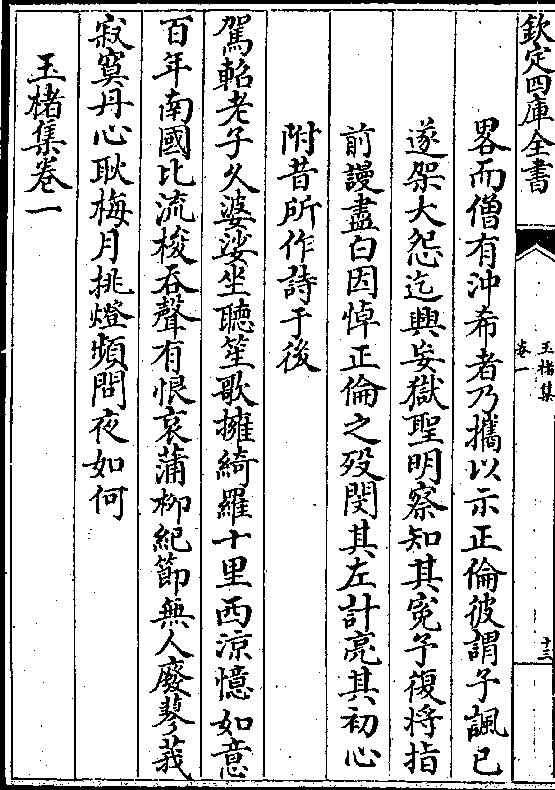 欽定四庫全書
玉楮集
卷一
十三
畧而僧有沖希者乃攜以示正倫彼謂予諷已
遂架大怨迄興妄獄聖明察知其寃予復将指
前謾盡白因悼正倫之殁閔其左計亮其初心
附昔所作詩于後
駕軺老子久婆娑坐聽笙歌擁綺羅十里西涼憶如意
百年南國比流梭吞聲有恨哀蒲柳紀節無人廢蓼莪
寂寞丹心耿梅月挑燈頻問夜如何
玉楮集卷一